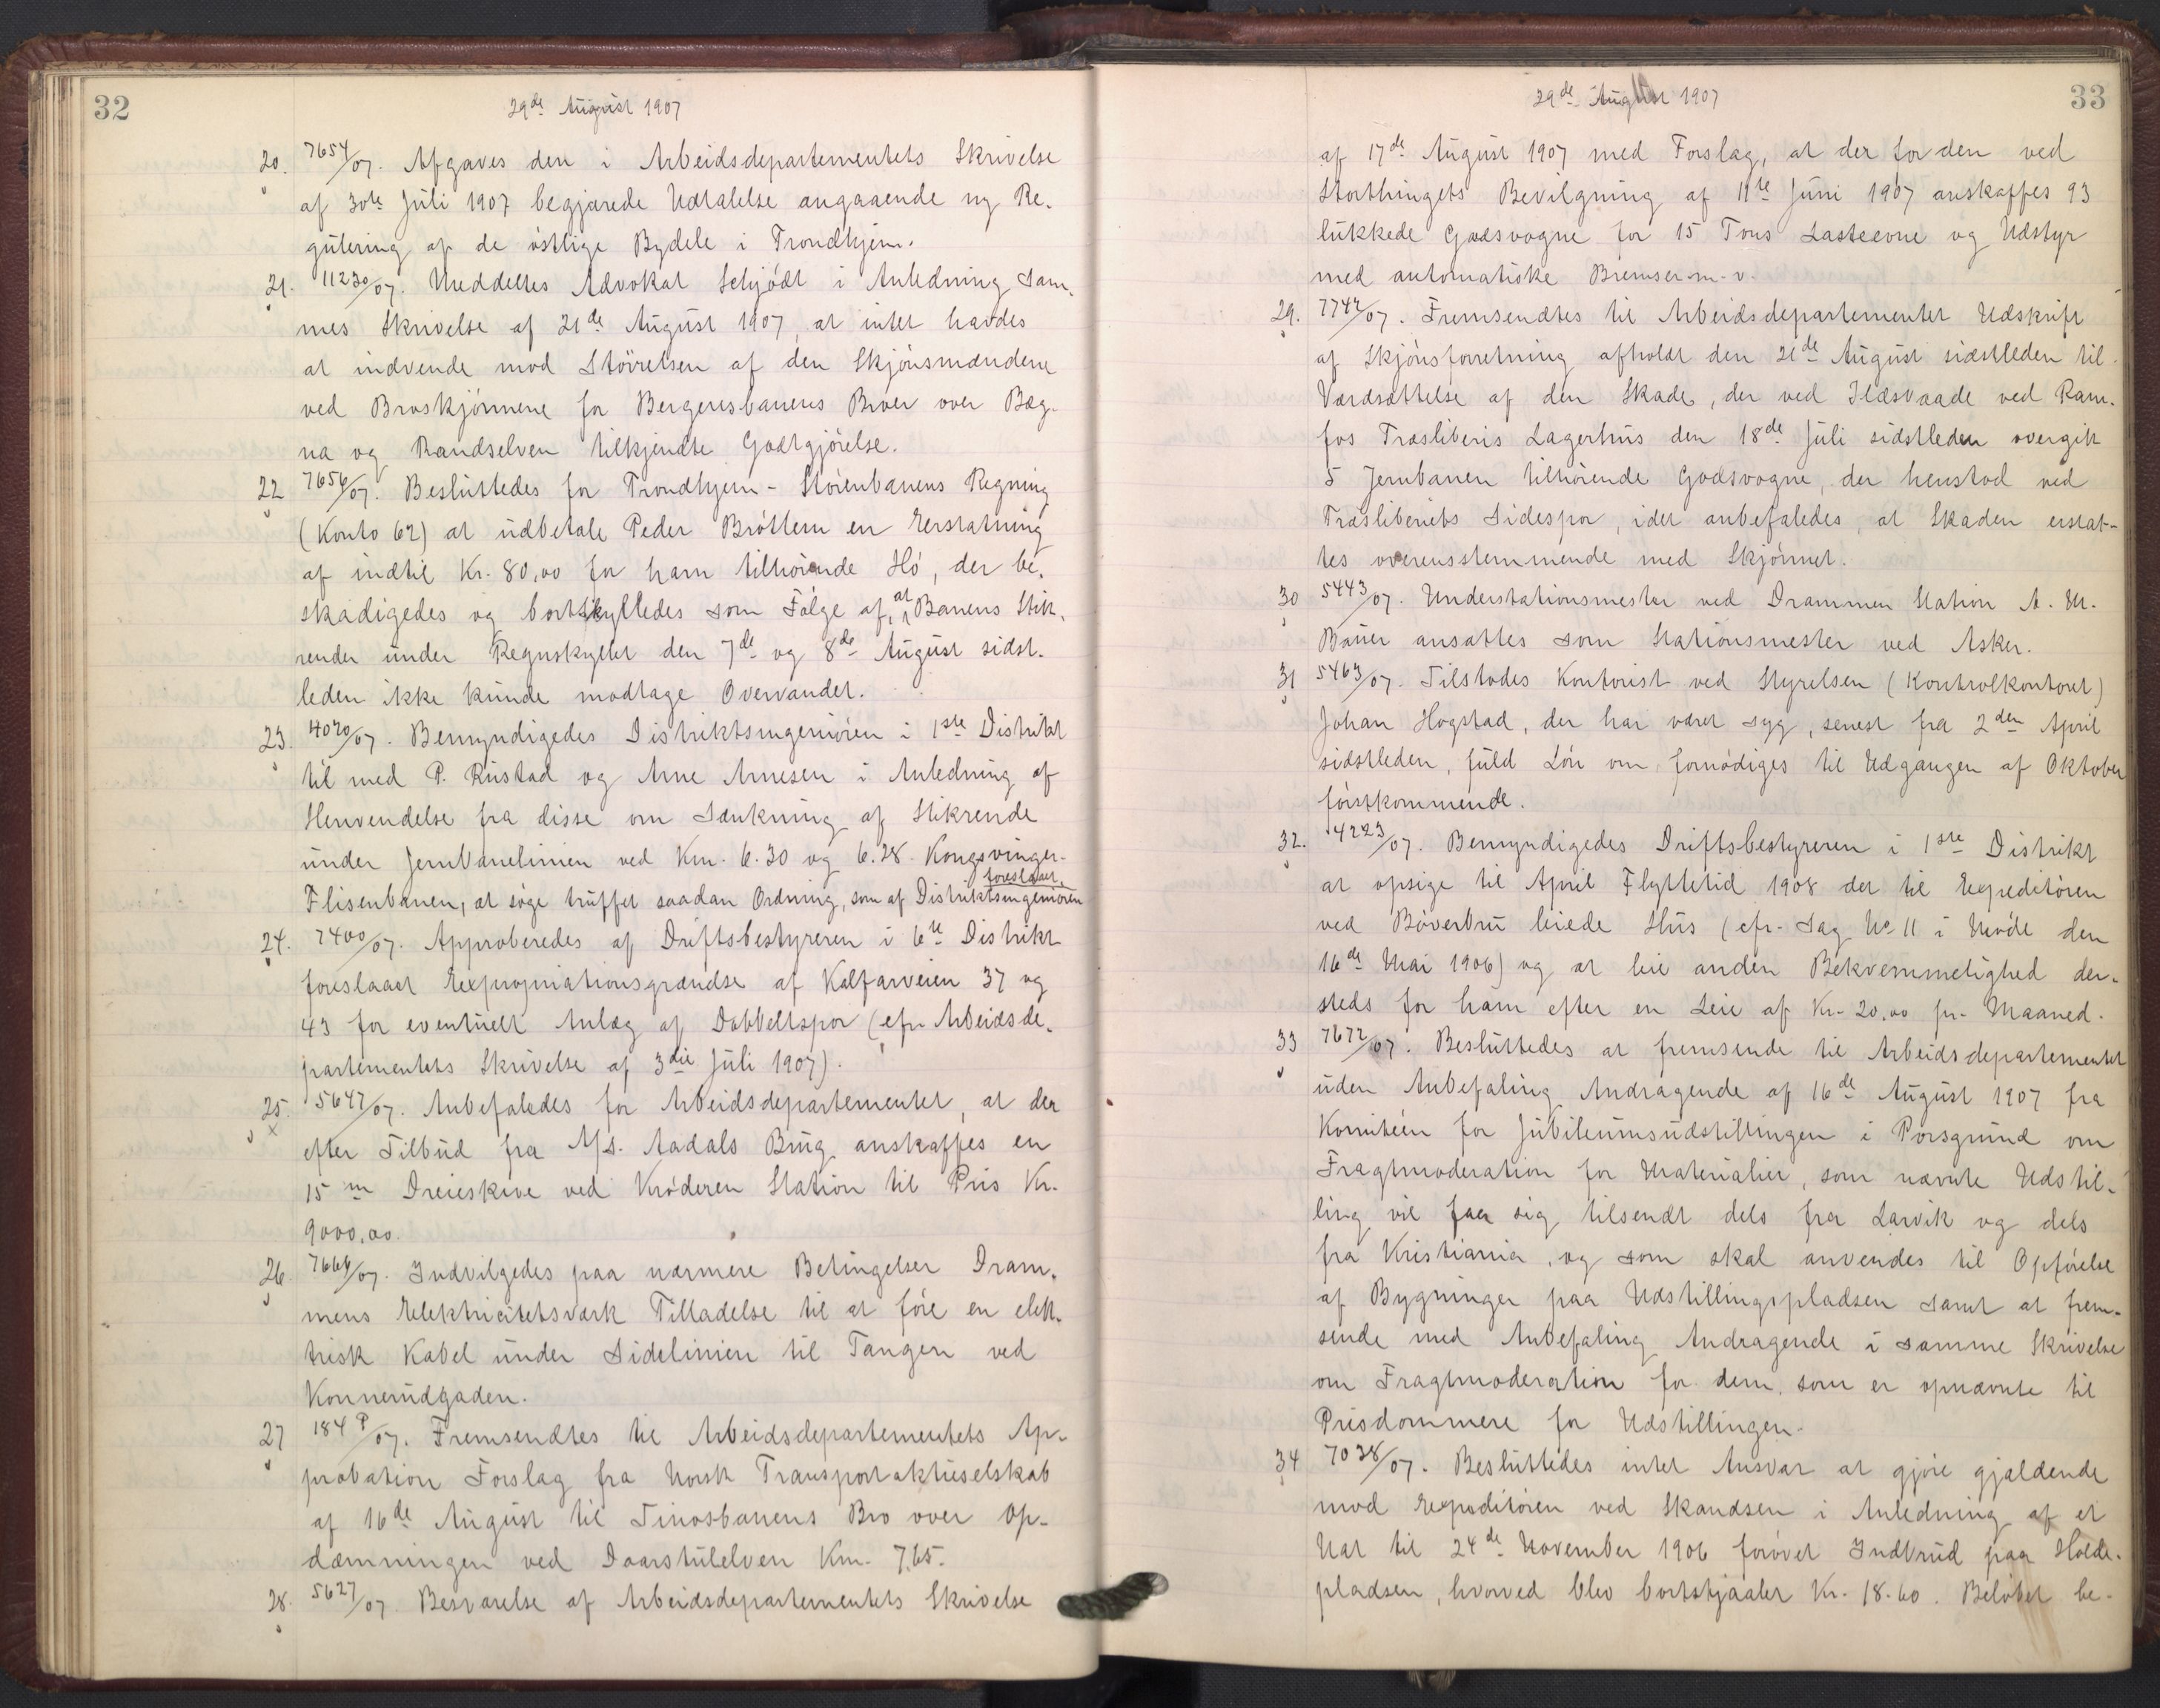 32
29de August 1907
20. 7654/07. Afgaves den i Arbeidsdepartementets Skrivelse
af 30te Juli 1907 begjærede Udtalelse angaaende ny Re-
gulering af de østlige Bydele i Trondhjem.
21. 11230/07. Meddeltes Advokat Schjødt i Anledning sam-
mes Skrivelse af 21de August 1907, at intet havdes
at indvende mod Størrelsen af den Skjønsmændene
ved Broskjønnene for Bergensbanens Broer over Bæg-
na og Randselven tilkjendte Godtgjørelse.
22 7656/07. Besluttedes for Trondhjem-Størenbanens Regning
(Konto 62) at udbetale Peder Brøttem en Erstatning
af indtil Kr. 80,00 for ham tilhørende Hø, der be-
skadigedes og bortskylledes som Følge af, at Banens Stik-
render under Regnskyllet den 7de og 8de August sidst-
leden ikke kunde modtage Overvandet.
23. 4020/07. Bemyndigedes Distriktsingeniøren i 1ste Distrikt
til med P. Rustad og Arne Arnesen i Anledning af
Henvendelse fra disse om Sænkning af Stikrende
under Jernbanelinien ved Km. 6.30 og 6.28 Kongsvinger-
Flisenbanen, at søge truffet saadan Ordning, som af Distriktsingeniøren foreslaaet.
24. 7400/07. Approberedes af Driftsbestyreren i 6te Distrikt
foreslaaet Expropriationsgrændse af Kalfarveien 37 og
43 for eventuelt Anlæg af Dobbeltspor (cfr. Arbeidsde-
partementets Skrivelse af 3die Juli 1907).
25. 5647/07. Anbefaledes for Arbeidsdepartementet, at der
efter Tilbud fra A/s. Aadals Brug anskaffes en
15 m Dreieskive ved Krøderen Station til Pris Kr.
9000,00.
26. 7666/07. Indvilgedes paa nærmere Betingelser Dram-
mens Elektricitetsværk Tilladelse til at føre en elek-
trisk Kabel under Sidelinien til Tangen ved
Konnerudgaden.
27 184 P/07. Fremsendtes til Arbeidsdepartementets Ap-
probation Forslag fra Norsk Transportaktieselskab
af 16de August til Tinosbanens Bro over Op-
dæmningen ved Daarstulelven Km. 7.65.
28. 5627/07. Besvarelse af Arbeidsdepartementets Skrivelse
33
29de August 1907
af 17de August 1907 med Forslag, at der for den ved
Storthingets Bevilgning af 11te Juni 1907 anskaffes 93
lukkede Godsvogne for 15 Tons Lasteevne og Udstyr
med automatiske Bremser m. v.
29. 7742/07. Fremsendtes til Arbeidsdepartementet Udskrift
af Skjønsforretning afholdt den 21de August sidstleden til
Værdsættelse af den Skade, der ved Ildsvaade ved Ram-
fos Træsliberis Lagerhus den 18de Juli sidstleden overgik
5 Jernbanen tilhørende Godsvogne, der henstod ved
Træsliberiets Sidespor, idet anbefaledes, at Skaden erstat-
tes overensstemmende med Skjønnet.
30 5443/07. Understationsmester ved Drammen Station A. M.
Bauer ansattes som Stationsmester ved Asker.
31 5463/07. Tilstodes Kontorist ved Styrelsen (Kontrolkontoret)
Johan Hogstad, der har været syg, senest fra 2den April
sidstleden, fuld Løn om fornødiges til Udgangen af Oktober
førstkommende.
32. 4223/07. Bemyndigedes Driftsbestyreren i 1ste Distrikt
at opsige til April Flyttetid 1908 det til Expeditøren
ved Bøverbru leiede Hus (cfr. Sag No 11 i Møde den
16de Mai 1906) og at leie anden Bekvemmelighed der-
steds for ham efter en Leie af Kr. 20,00 pr. Maaned.
33 7672/07. Besluttedes at fremsende til Arbeidsdepartementet
uden Anbefaling Andragende af 16de August 1907 fra
Komitéen for Jubilæumsudstillingen i Porsgrund om
Fragtmoderation for Materialier, som nævnte Udstil-
ling vil faa sig tilsendt dels fra Larvik og dels
fra Kristiania, og som skal anvendes til Opførelse
af Bygninger paa Udstillingspladsen samt at frem-
sende med Anbefaling Andragende i samme Skrivelse
om Fragtmoderation for dem, som er opnævnte til
Prisdommere for Udstillingen.
34 7038/07. Besluttedes intet Ansvar at gjøre gjældende
mod Expeditøren ved Skandsen i Anledning af et
Nat til 24de November 1906 forøvet Indbrud paa Holde-
pladsen, hvorved blev bortstjaalet Kr. 18.60. Beløbet be-